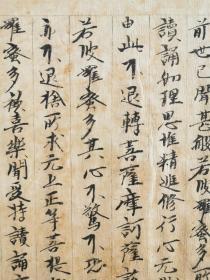 前世已聞甚深般若波
讀誦如理思惟精進修行心无
由此不退轉菩薩摩訶薩
若波羅蜜多其心不驚不恐
亦不退捨所求无上正等菩提
羅蜜多獲喜樂聞受持讀誦